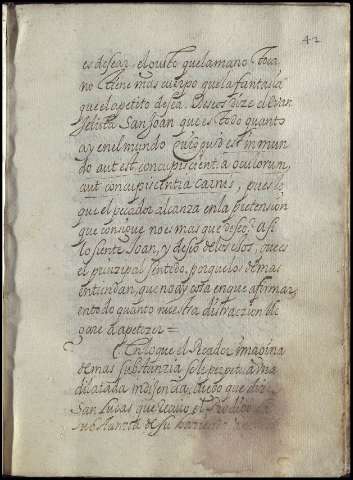 42
es desear el gusto que la mano toca,
no tiene mas cuerpo que la fantasia
que el apetito desea. Deseos dize el Evan
gelista San Joan que es todo quanto
ay en el mundo Quidquid est in mun
do aut est concupiscientia oculorum,
aut concupiscentia carnis, pues lo
que el pecador alcanza en la pretension
que consigue no es mas que deseo. Asi
lo siente Joan, y deseo de los ojos, que es
el prinzipal sentido, porque los demas
entiendan, que no ay cosa en que afirmar
en todo quanto nuestra distraczion lle
gare a apetezer =
En lo que el Pecador imagina
de mas substanzia se le perpetua una
dilatada indigencia, luego que dize
San Lucas que recivio el Prodigo la
substanzia de su